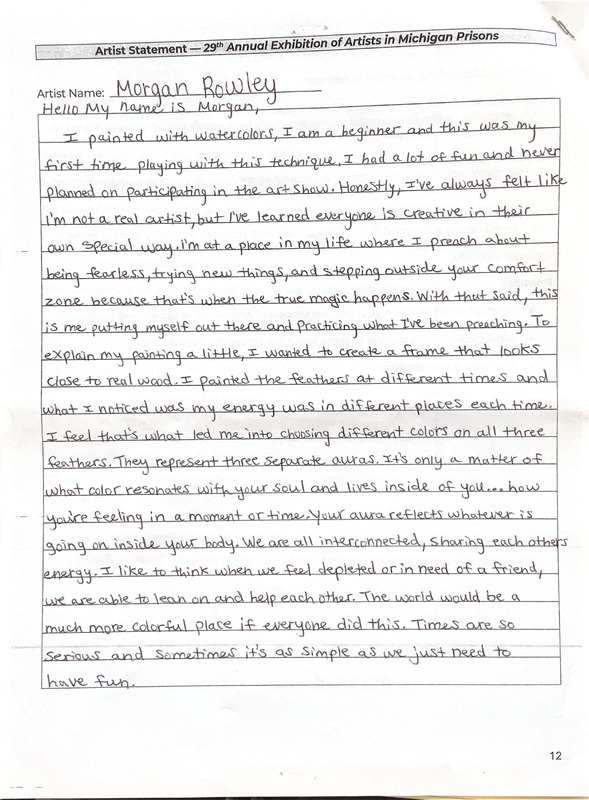 Artist Statement — 29th Annual Exhibition of Artists in Michigan Prisons
Artist Name: Morgan Rowley
Hello My name is Morgan,
I painted with watercolors, I am a beginner and this was my
first time playing with this technique. I had a lot of fun and never
planned on participating in the art show. Honestly, I've always felt like
I'm not a real artist, but I've learned everyone is creative in their
own special way. I'm at a place in my life where I preach about
being fearless, trying new things, and stepping outside your comfort
zone because that's when the true magic happens. With that said, this
is me putting myself out there and practicing what I've been preaching. To
explain my painting a little, I wanted to create a frame that looks
close to real wood. I painted the feathers at different times and
what I noticed was my energy was in different places each time.
I feel that's what led me into choosing different colors on all three
feathers. They represent three separate auras. It's only a matter of
what color resonates with your soul and lives inside of you... how
you're feeling in a moment or time. Your aura reflects whatever is
going on inside your body. We are all interconnected, sharing each others
energy. I like to think when we feel depleted or in need of a friend,
we are able to lean on and help each other. The world would be a
much more colorful place if everyone did this. Times are so
serious and sometimes it's as simple as we just need to
have fun.
12